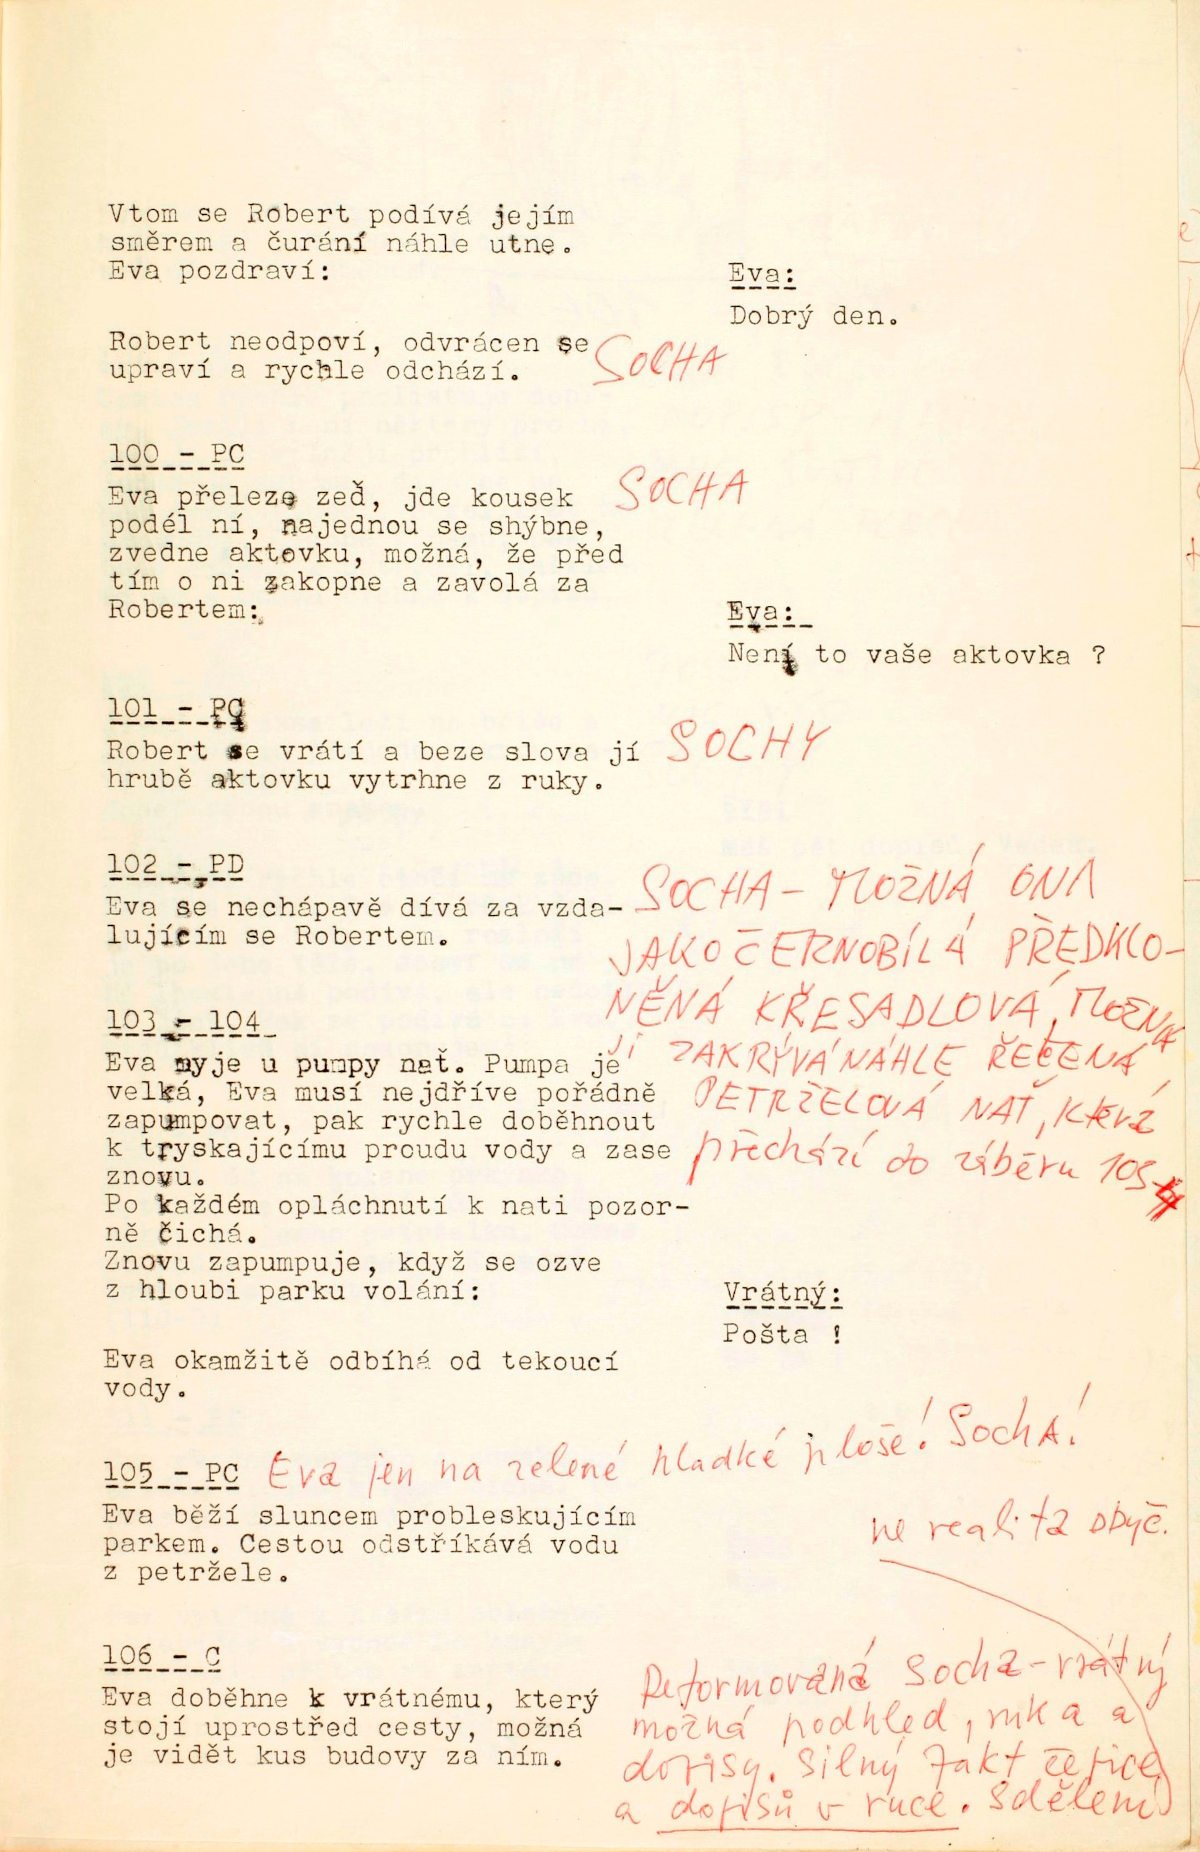 Vtom se Robert podívá jejím
směrem a čurání náhle utne.
Eva pozdraví:
Eva:
Dobrý den.
Robert neodpoví, odvrácen se
upraví a rychle odchází.
SOCHA
100 - PC
Eva přeleze zeď, jde kousek
podél ní, najednou se shýbne,
zvedne aktovku, možná, že před
tím o ni zakopne a zavolá za
Robertem:
SOCHA
Eva:
Není to vaše aktovka ?
101 - PC
Robert se vrátí a beze slova jí
hrubě aktovku vytrhne z ruky.
SOCHY
102 - PD
Eva se nechápavě dívá za vzda-
lujícím se Robertem.
SOCHA - MOŽNÁ ONA
JAKO ČERNOBÍLÁ PŘEDKLO-
NĚNÁ KŘESADLOVÁ, MOŽNÁ
JI ZAKRÝVÁ NÁHLE ŘEČENÁ
PETRŽELOVÁ NAŤ, která
přechází do záběru 103
103 - 104
Eva myje u pumpy nať. Pumpa je
velká, Eva musí nejdříve pořádně
zapumpovat, pak rychle doběhnout
k tryskajícímu proudu vody a zase
znovu.
Po každém opláchnutí k nati pozor-
ně čichá.
Znovu zapumpuje, když se ozve
z hloubi parku volání:
Vrátný:
Pošta !
Eva okamžitě odbíhá od tekoucí
vody.
105 - PC Eva jen na zelené hladké ploše! SochA!
Eva běží sluncem probleskujícím
parkem. Cestou odstříkává vodu
z petržele.
ne realita obyč.
106 - C
Eva doběhne k vrátnému, který
stojí uprostřed cesty, možná
je vidět kus budovy za ním.
Deformovaná socha - vrátný
možná podhled, ruka a
dopisy. Silný fakt čepice
a dopisů v ruce. Sdělení